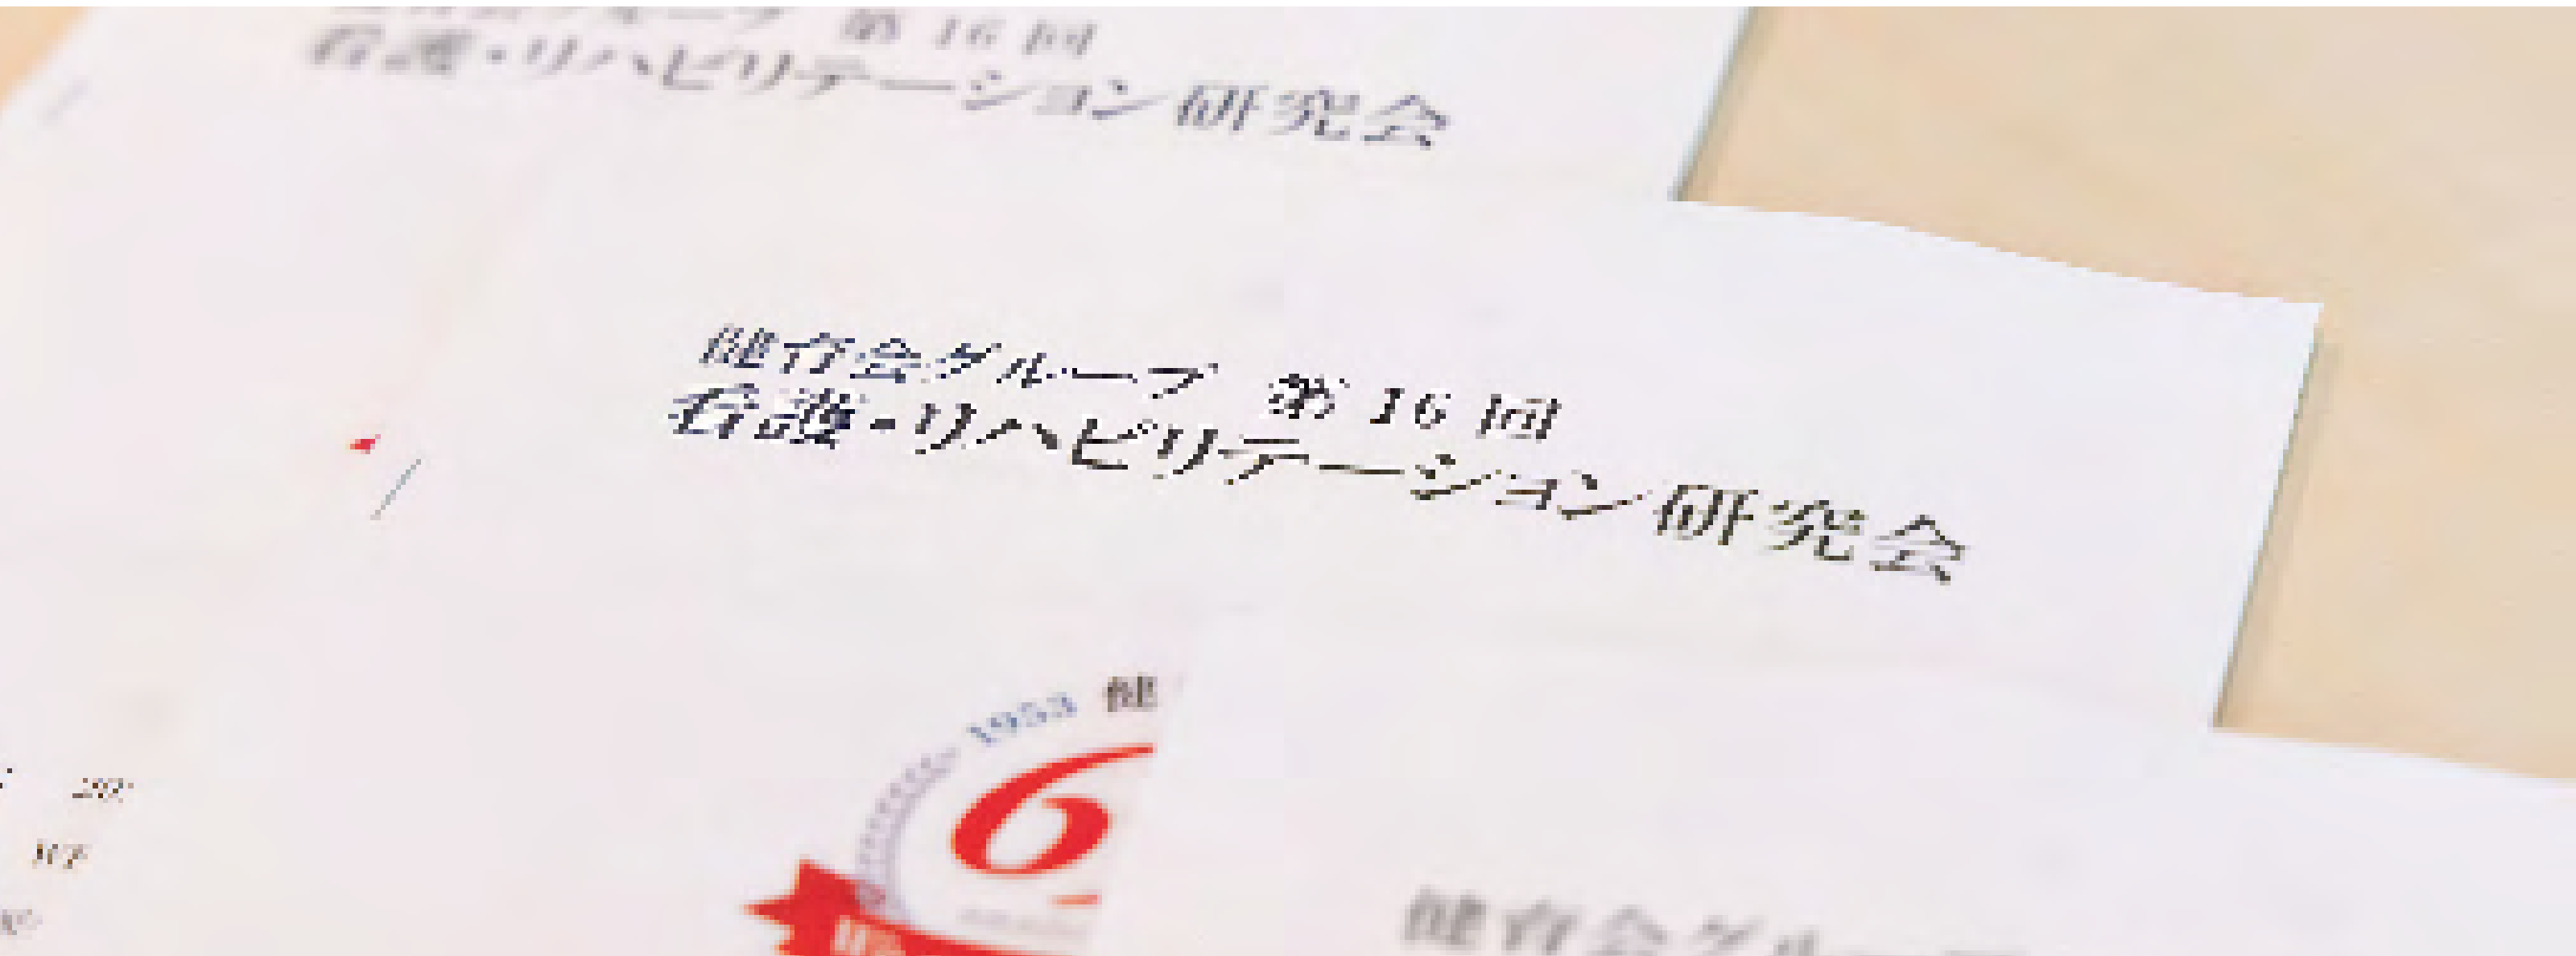 第16回
看護・リハビリテーション研究会
健育会グループ 第16回
看護・リハビリテーション研究会
1953 健
6
健育会グルー